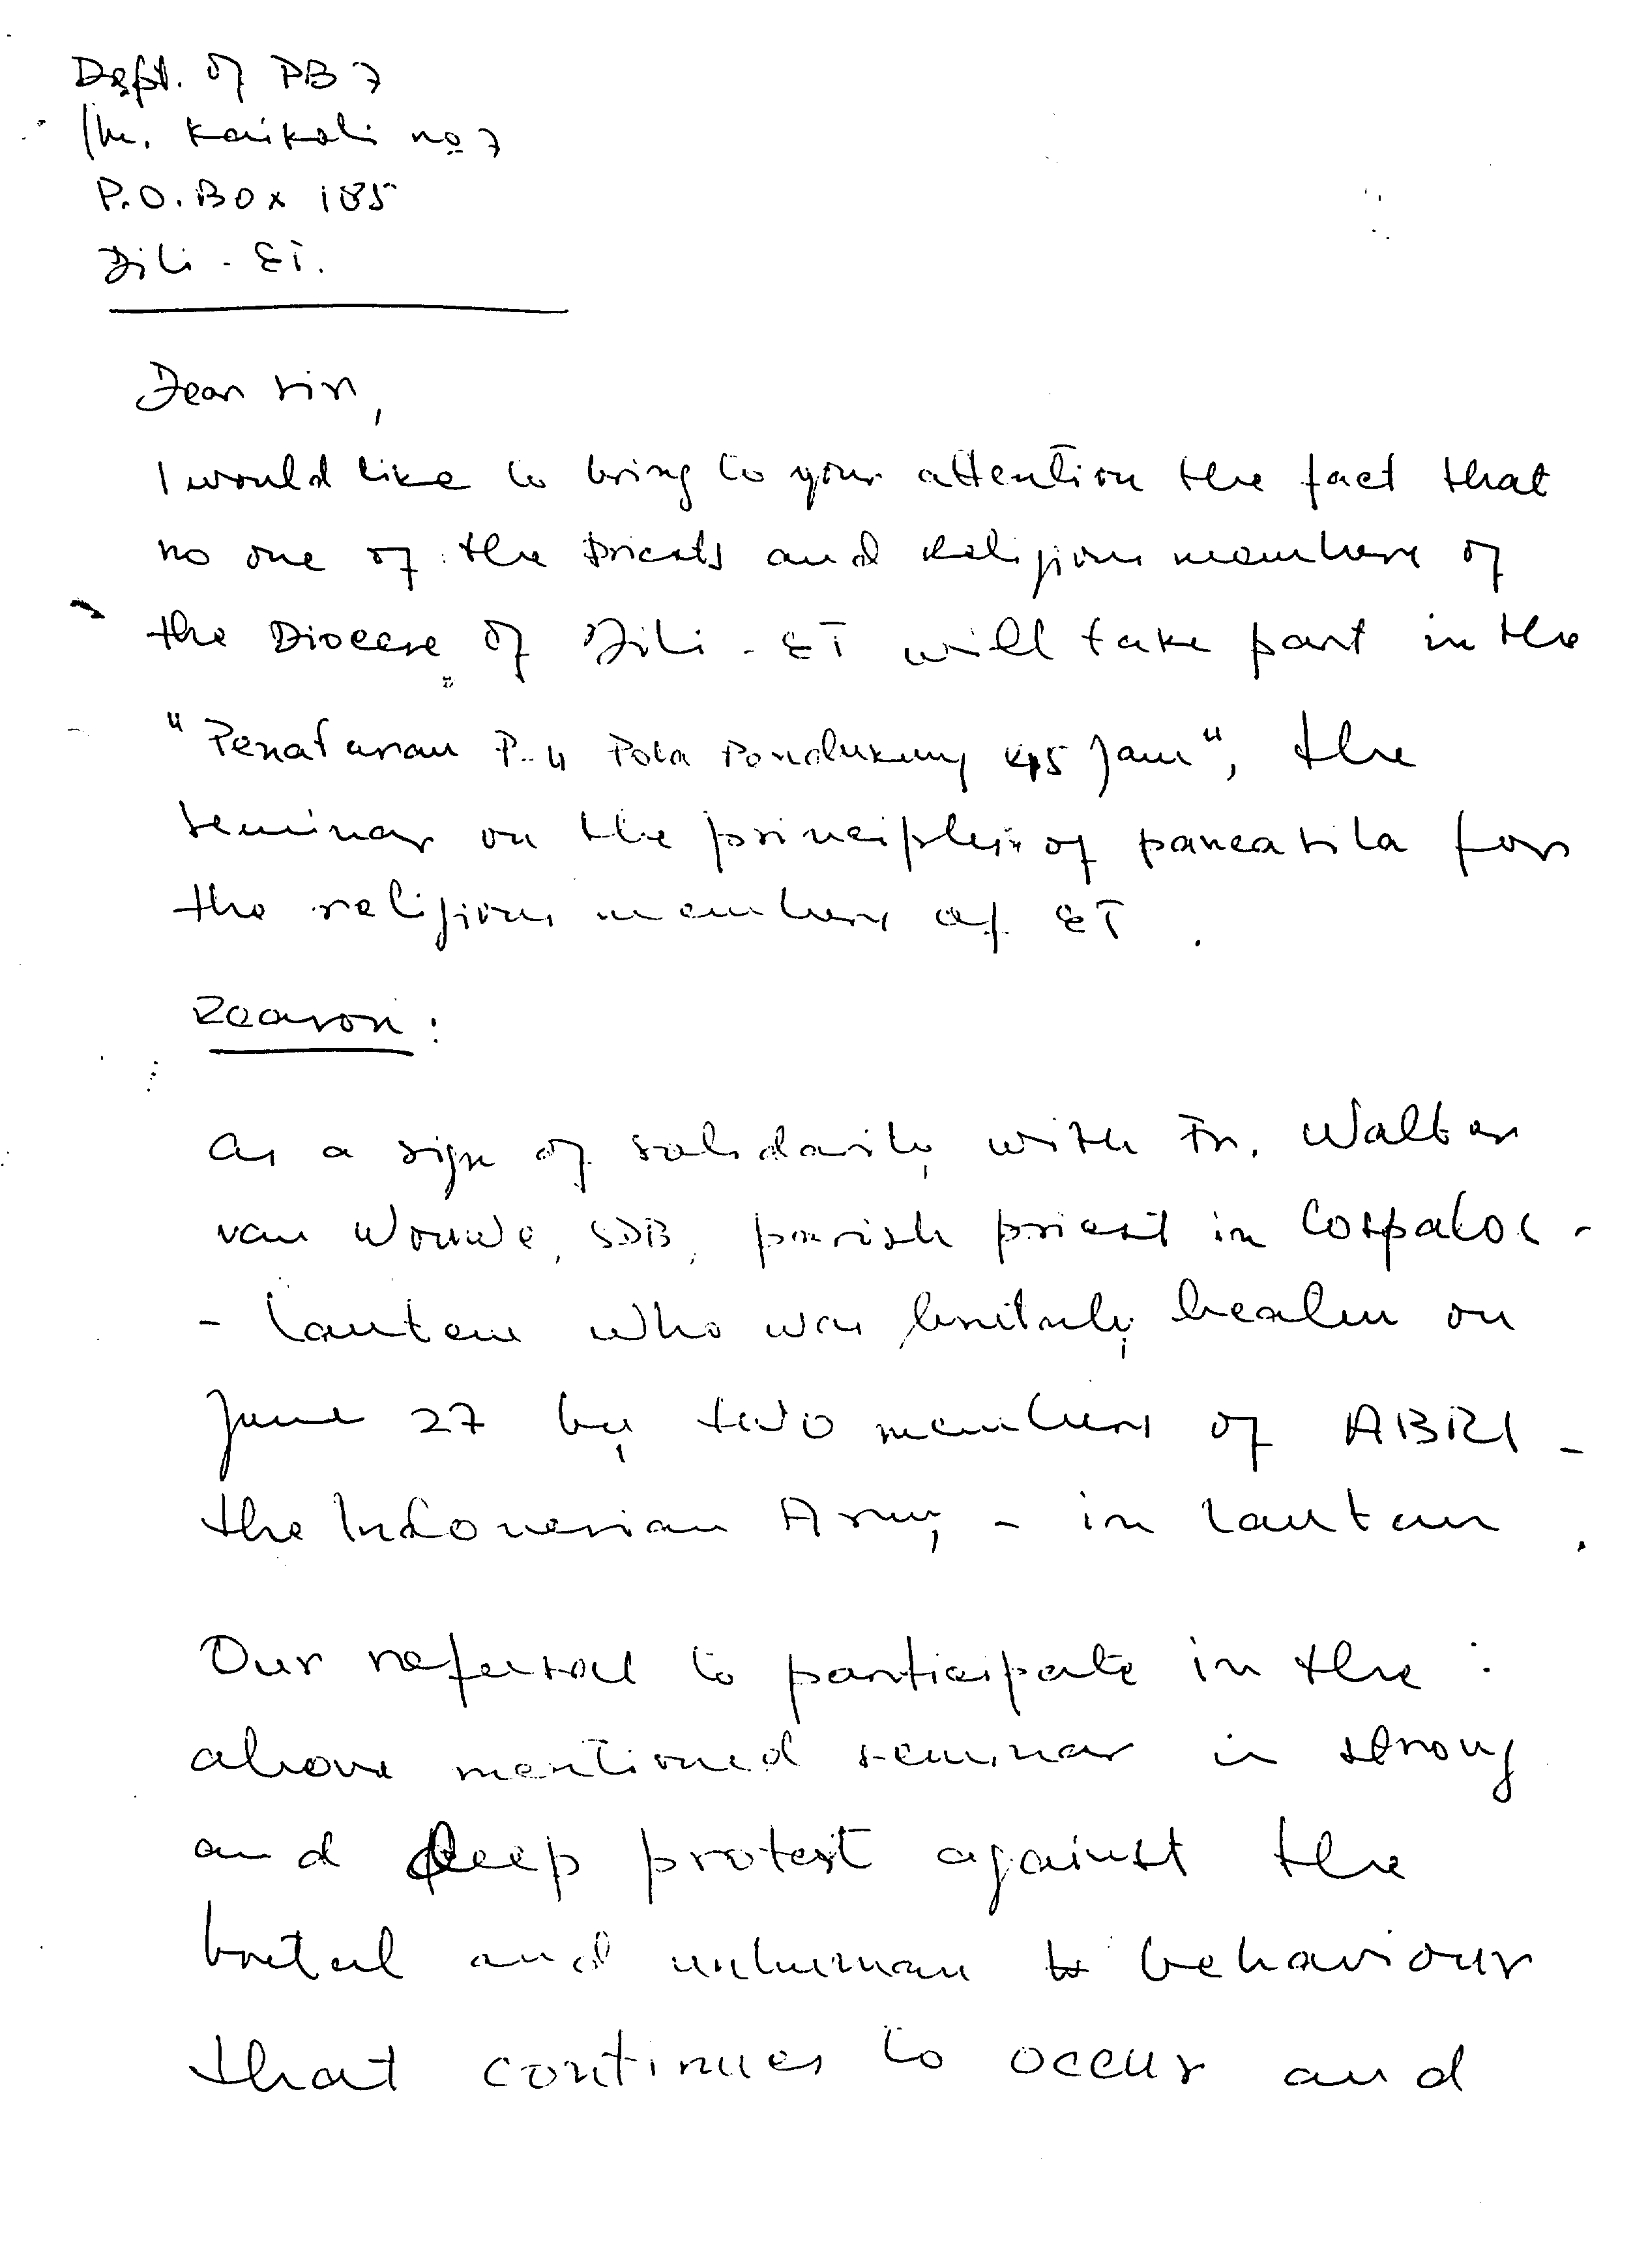 Dept. of PB 7
Kaikoli no 7
P.O. Box 185
Dili - ET.
Dear Sir,
I would like to bring to your attention the fact that
no one of the Priests and Religious members of
the Diocese of Dili - ET will take part in the
"Penataran P-4 Pola Pendukung 45 Jam", the
seminar on the principles of pancasila for
the religious members of ET.
Reason:
As a sign of solidarity with Fr. Walter
van Wouwe, SDB, parish priest in Lospalos -
- Lautem who was brutaly beaten on
June 27 by two members of ABRI -
the Indonesian Army - in Lautem.
Our refusal to participate in the
above mentioned seminar is strong
and deep protest against the
brutal and unhuman behaviour
that continues to occur and